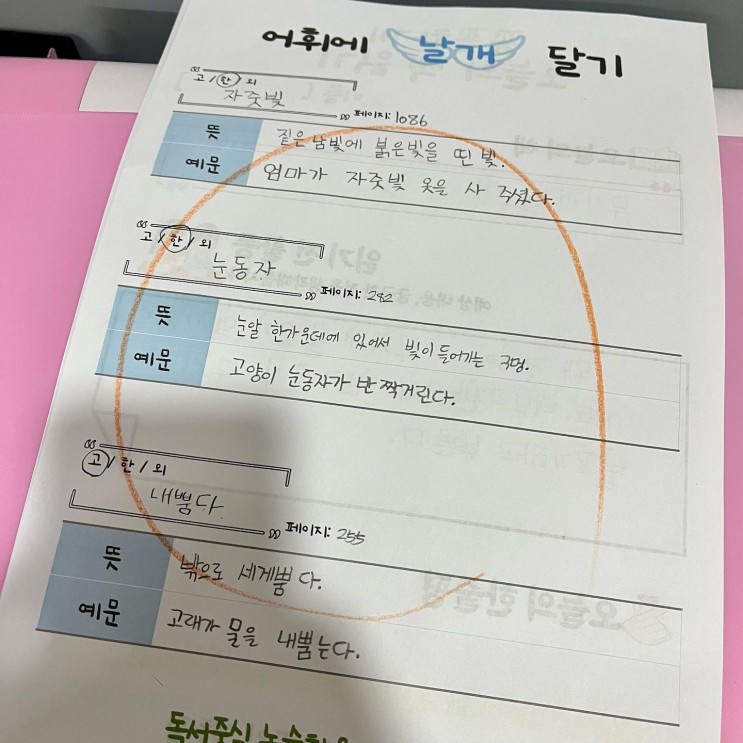 어휘에 날개 달기
고 / 한 / 외
자줏빛
페이지: 1086
뜻 짙은 남빛에 붉은빛을 띤 빛.
예문 엄마가 자줏빛 옷을 사 주셨다.
고 / 한 / 외
눈동자
페이지: 242
뜻 눈알 한가운데에 있어서 빛이 들어가는 구멍.
예문 고양이 눈동자가 반짝거린다.
고 / 한 / 외
내뿜다
페이지: 255
뜻 밖으로 세게뿜다.
예문 고래가 물을 내뿜는다.
독서중심